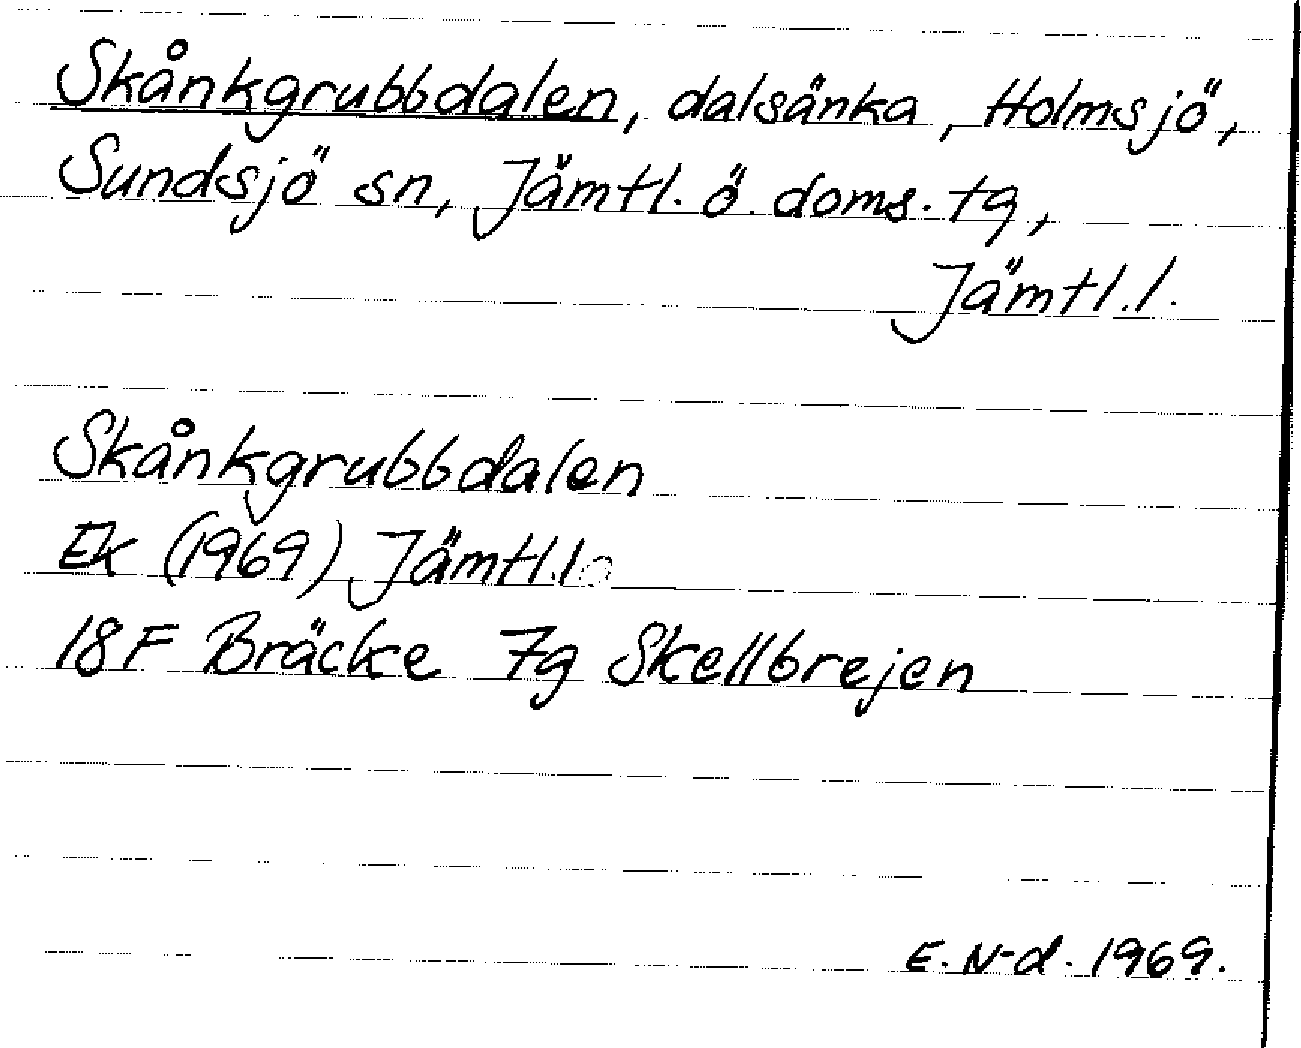 Skånkgrubbdalen, dalsänka, Holmsjö,
Sundsjö sn, Jämtl. ö. doms. tg,
Jämtl. l.
Skånkgrubbdalen
Ek (1969) Jämtl. l.
18F Bräcke 7g Skellbrejen
E. N-d. 1969.